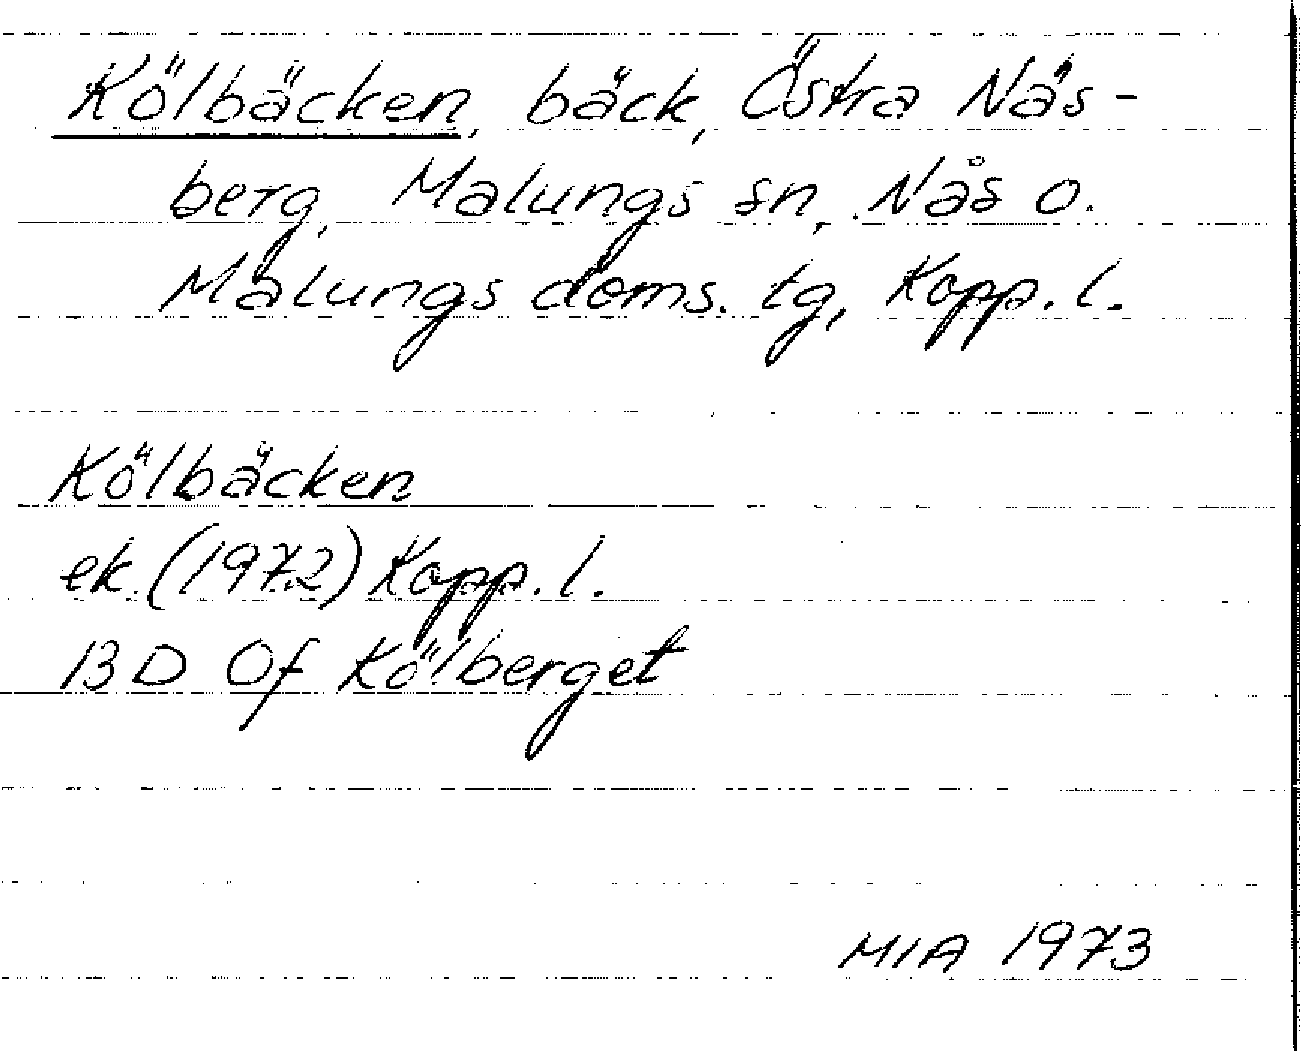 Kölbäcken, bäck, Östra Näs-
berg, Malungs sn, Nås o.
Malungs doms. tg, Kopp. l.
Kölbäcken
ek. (1972) Kopp. l.
13 D Of Kölberget
MIA 1973